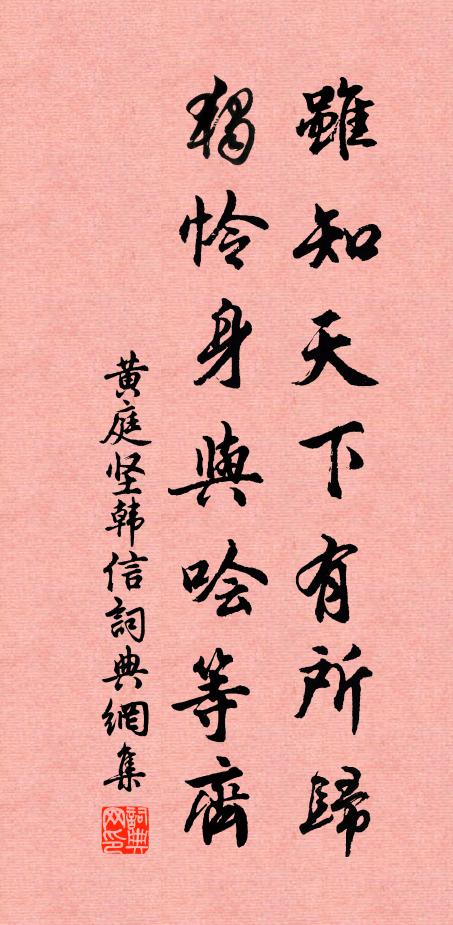 雖知天下有所歸
獨憐身與噲等齊
黄庭坚韩信詞典網集
詞典网印